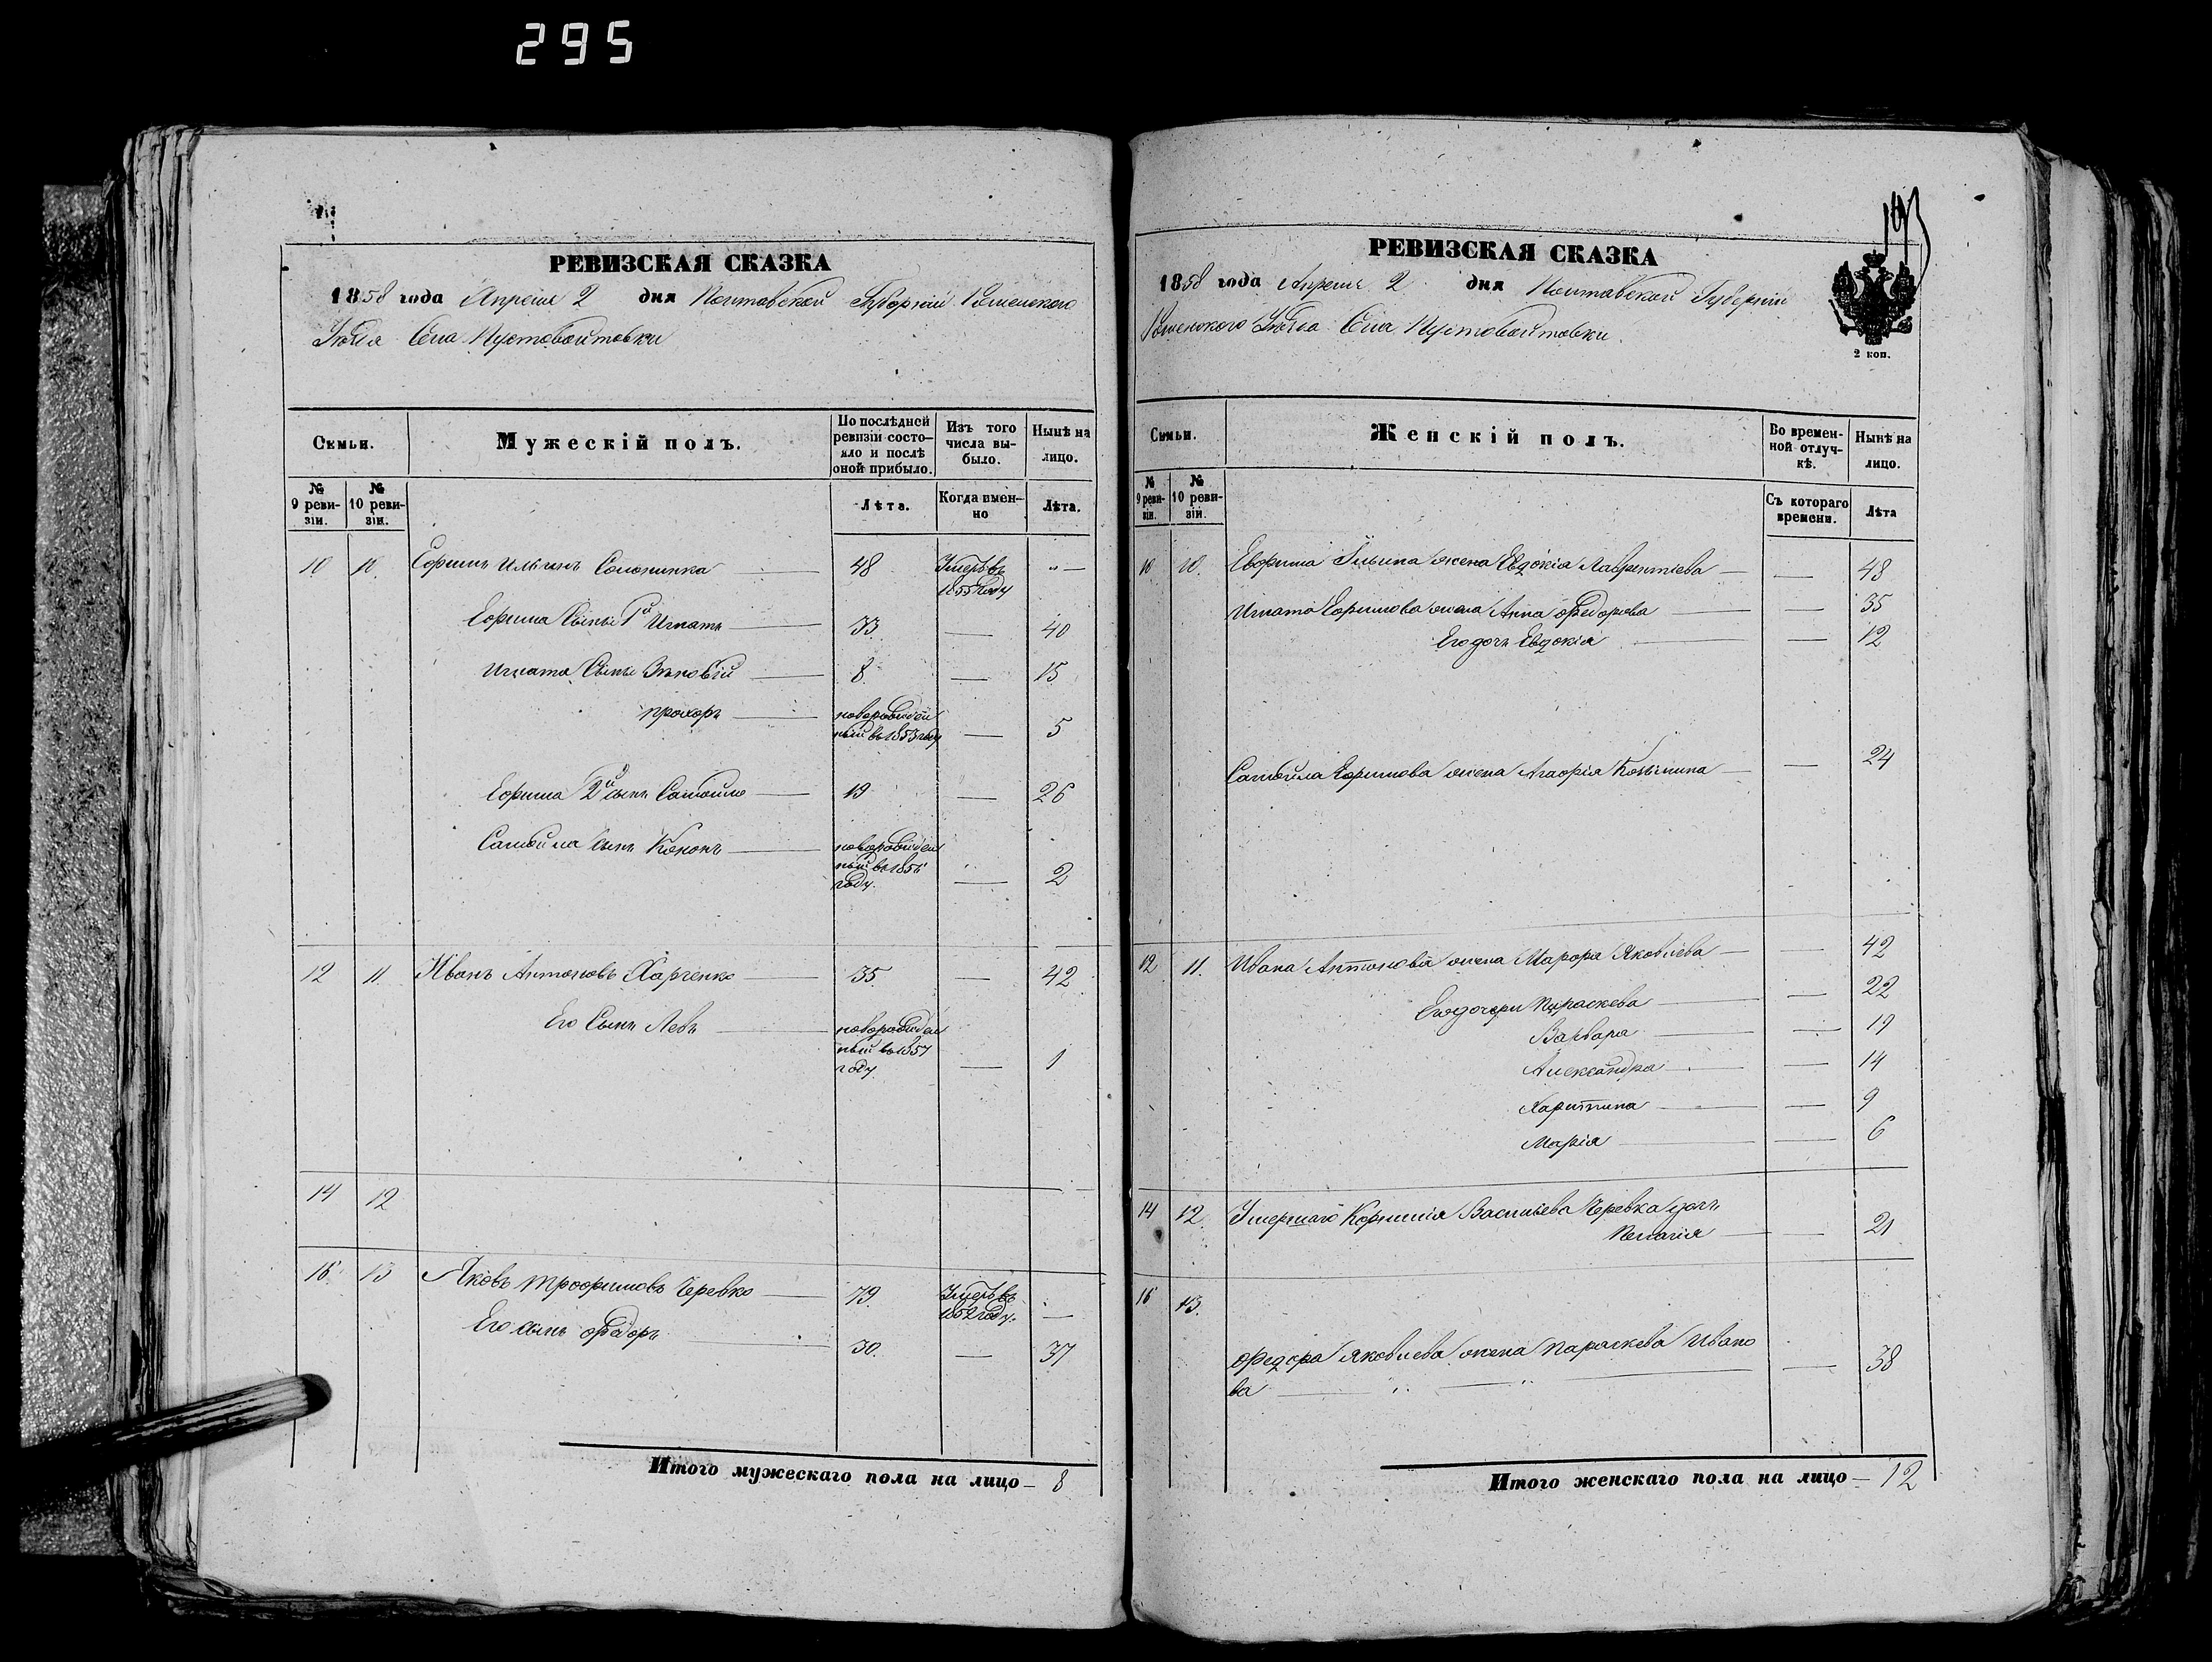 295
РЕВИЗСКАЯ СКАЗКА
1858 года Апреля 2 дня Полтавской Губернiи Роменского
Уѣзда Села Пустовойтовки
Семьи.
Мужескій полъ.
По послѣдней ревизіи состояло и послѣ оной прибыло.
Изъ того числа выбыло.
Нынѣ на лицо.
№ 9 ревизіи.
№ 10 ревизіи.
Лѣта.
Когда именно
Лѣта.
10 10. Ефимъ Ильинъ Солонинка 48 Умеръ въ 1855 Году —
Ефима Сынъ 1й Игнатъ 33. — 40
Игната Сынъ Зѣновій 8. — 15
прохоръ новорожденный въ 1853 году — 5
Ефима 2й сынъ Самойло 19 — 26
Самойла сынъ Кононъ новорожденный въ 185 году. — 2
12 11. Иванъ Антоновъ Харченко 35. — 42
Его Сынъ Левъ новорожденный въ 1857 году. — 1
14 12
16 13 Яковъ Трофимовъ Черевко 79. Умеръ въ 1852 году. —
Его сынъ Федоръ 30. — 37
Итого мужескаго пола на лицо — 8
193
РЕВИЗСКАЯ СКАЗКА
1858 года Апреля 2 дня Полтавской Губерніи
Роменского Уѣзда Села Пустовойтовки.
2 коп.
Семьи.
Женскій полъ.
Во временной отлучкѣ.
Нынѣ на лицо.
№ 9 ревизіи.
№ 10 ревизіи.
Съ котораго времени.
Лѣта
10. 10. Евфима Ильина жена Евдокія Лаврентіева — 48
Игната Ефимова жена Анна Федорова — 35
Его дочь Евдокія — 12
Самойла Ефимова жена Агафія Козьмина — 24
12 11. Ивана Антонова жена Марфа Яковлева — 42
Его дочери Параскева — 22
Варвара — 19
Александра — 14
Харитина — 9
Марія — 6
14 12. Умершаго Корнилія Васильева Черевка дочь
Пелагія — 21
16 13.
Федора Яковлева жена Параскева Ивано
ва — 38
Итого женскаго пола на лицо — 12